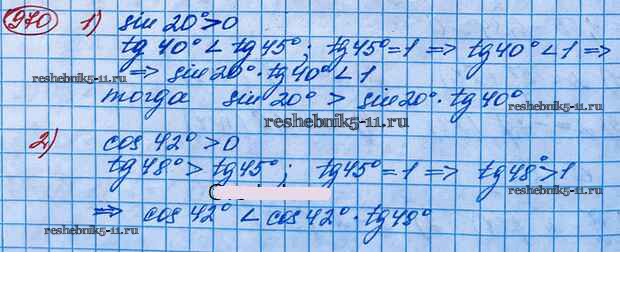 970 1) sin 20° > 0
tg 40° < tg 45°; tg 45° = 1 => tg 40° < 1 =>
=> sin 20° · tg 40° < 1
reshebnik5-11.ru
reshebnik5-11.ru
тогда sin 20° > sin 20° · tg 40°
reshebnik5-11.ru
2) cos 42° > 0
tg 48° > tg 45°; tg 45° = 1 => tg 48° > 1
reshebnik5-11.ru
=> cos 42° < cos 42° · tg 48°
reshebnik5-11.ru